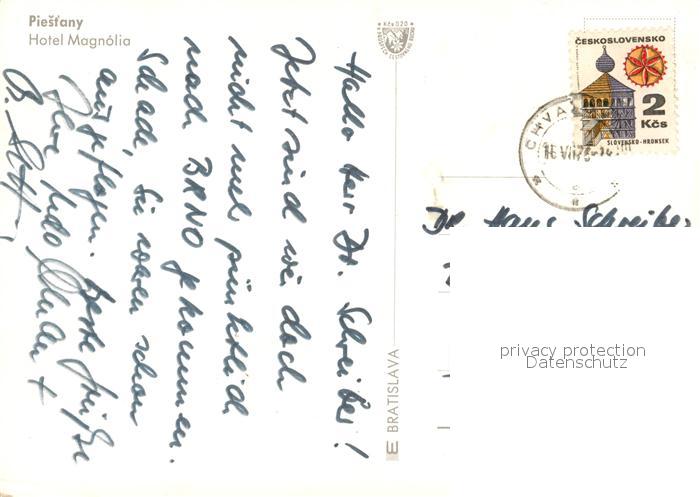 Piešťany
Hotel Magnólia
Kčs 0,20
Hallo Herr Dr. Schreiber!
Jetzt sind wir doch
nicht mehr pünktlich
nach BRNO gekommen.
Schade, Sie waren schon
ausgeflogen. Beste Grüße
Ihre
BRATISLAVA
ČESKOSLOVENSKO
2
Kčs
SLOVENSKO-HRONSEK
CHVA
Dr. Hans Schreiber
privacy protection
Datenschutz